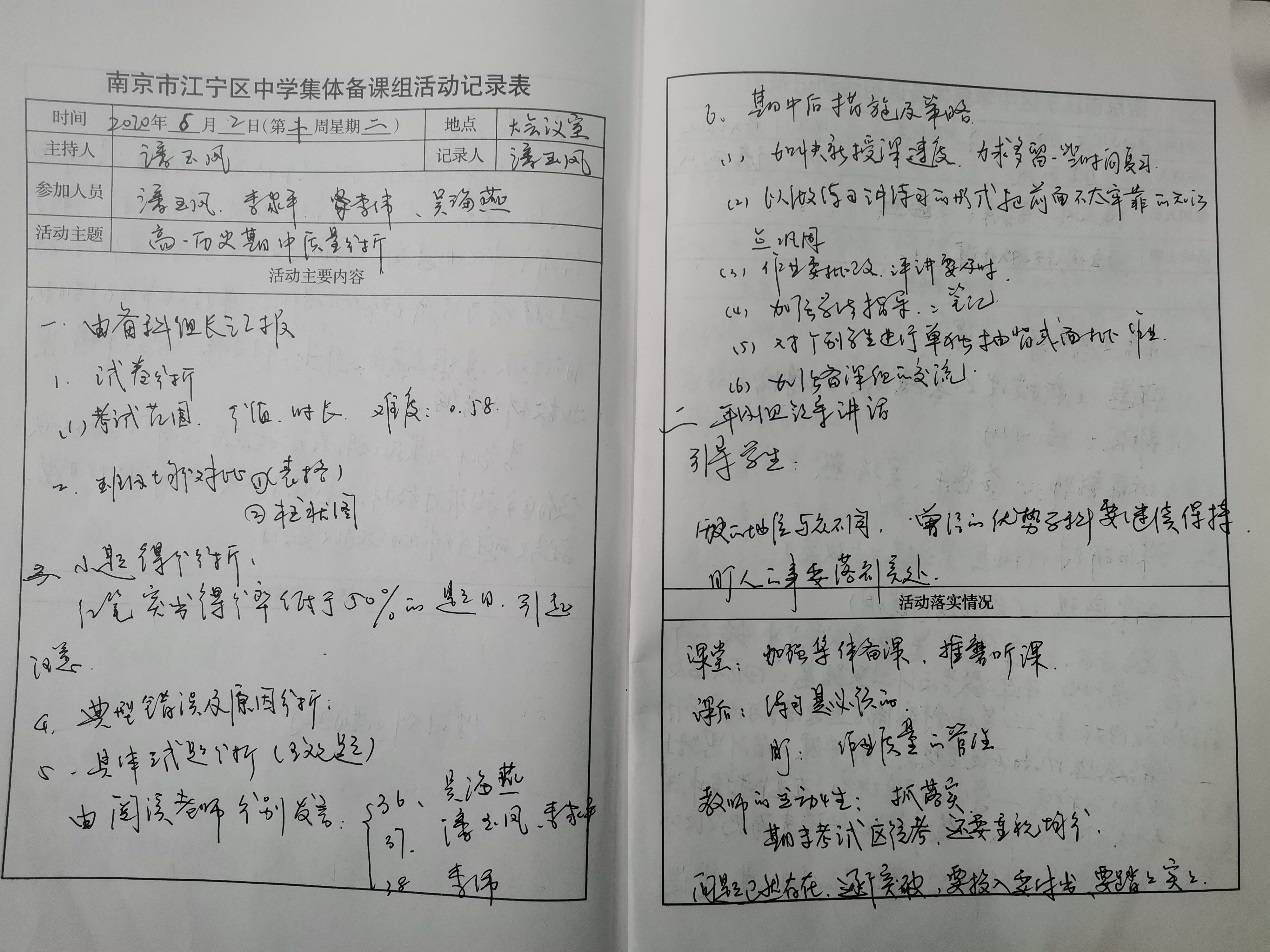 南京市江宁区中学集体备课组活动记录表
时间 2020年6月2日(第十周星期二) 地点 大会议室
主持人 潘玉凤 记录人 潘玉凤
参加人员 潘玉凤、李家平 李伟、吴海燕
活动主题 高一历史期中质量分析
活动主要内容
一、由备科组长汇报
1. 试卷分析
(1)考试范围、分值、时长、难度：0.58.
二、班级均分对比①(表格)
②柱状图
三、小题得分分析：
红笔突出得分率低于50%的题目，引起
注意.
4、典型错误及原因分析：
5、具体试题分析(主观题)
由阅卷老师分别发言：36、吴海燕
37、潘玉凤、李家平
38 李伟
6、期中后措施及策略
(1) 加快新授课进度，力求多留一些时间复习.
(2) 以做练习讲练习的形式把前面不太牢靠的知识
点巩固
(3) 作业要批改，评讲要及时.
(4) 加强学法指导：笔记
(5) 对个别学生进行单独抽背或面批作业.
(6) 加强备课组的交流.
二、年级组领导讲话
引导学生：
历史的地位与众不同，曾经的优势学科要继续保持
盯人之事要落到实处.
活动落实情况
课堂：加强集体备课，推磨听课.
课后：练习是必须的.
盯：作业质量的管理
教师的主动性：抓落实
期末考试区统考，还要重视均分.
问题已然存在，逐个突破，要投入要付出，要踏踏实实.